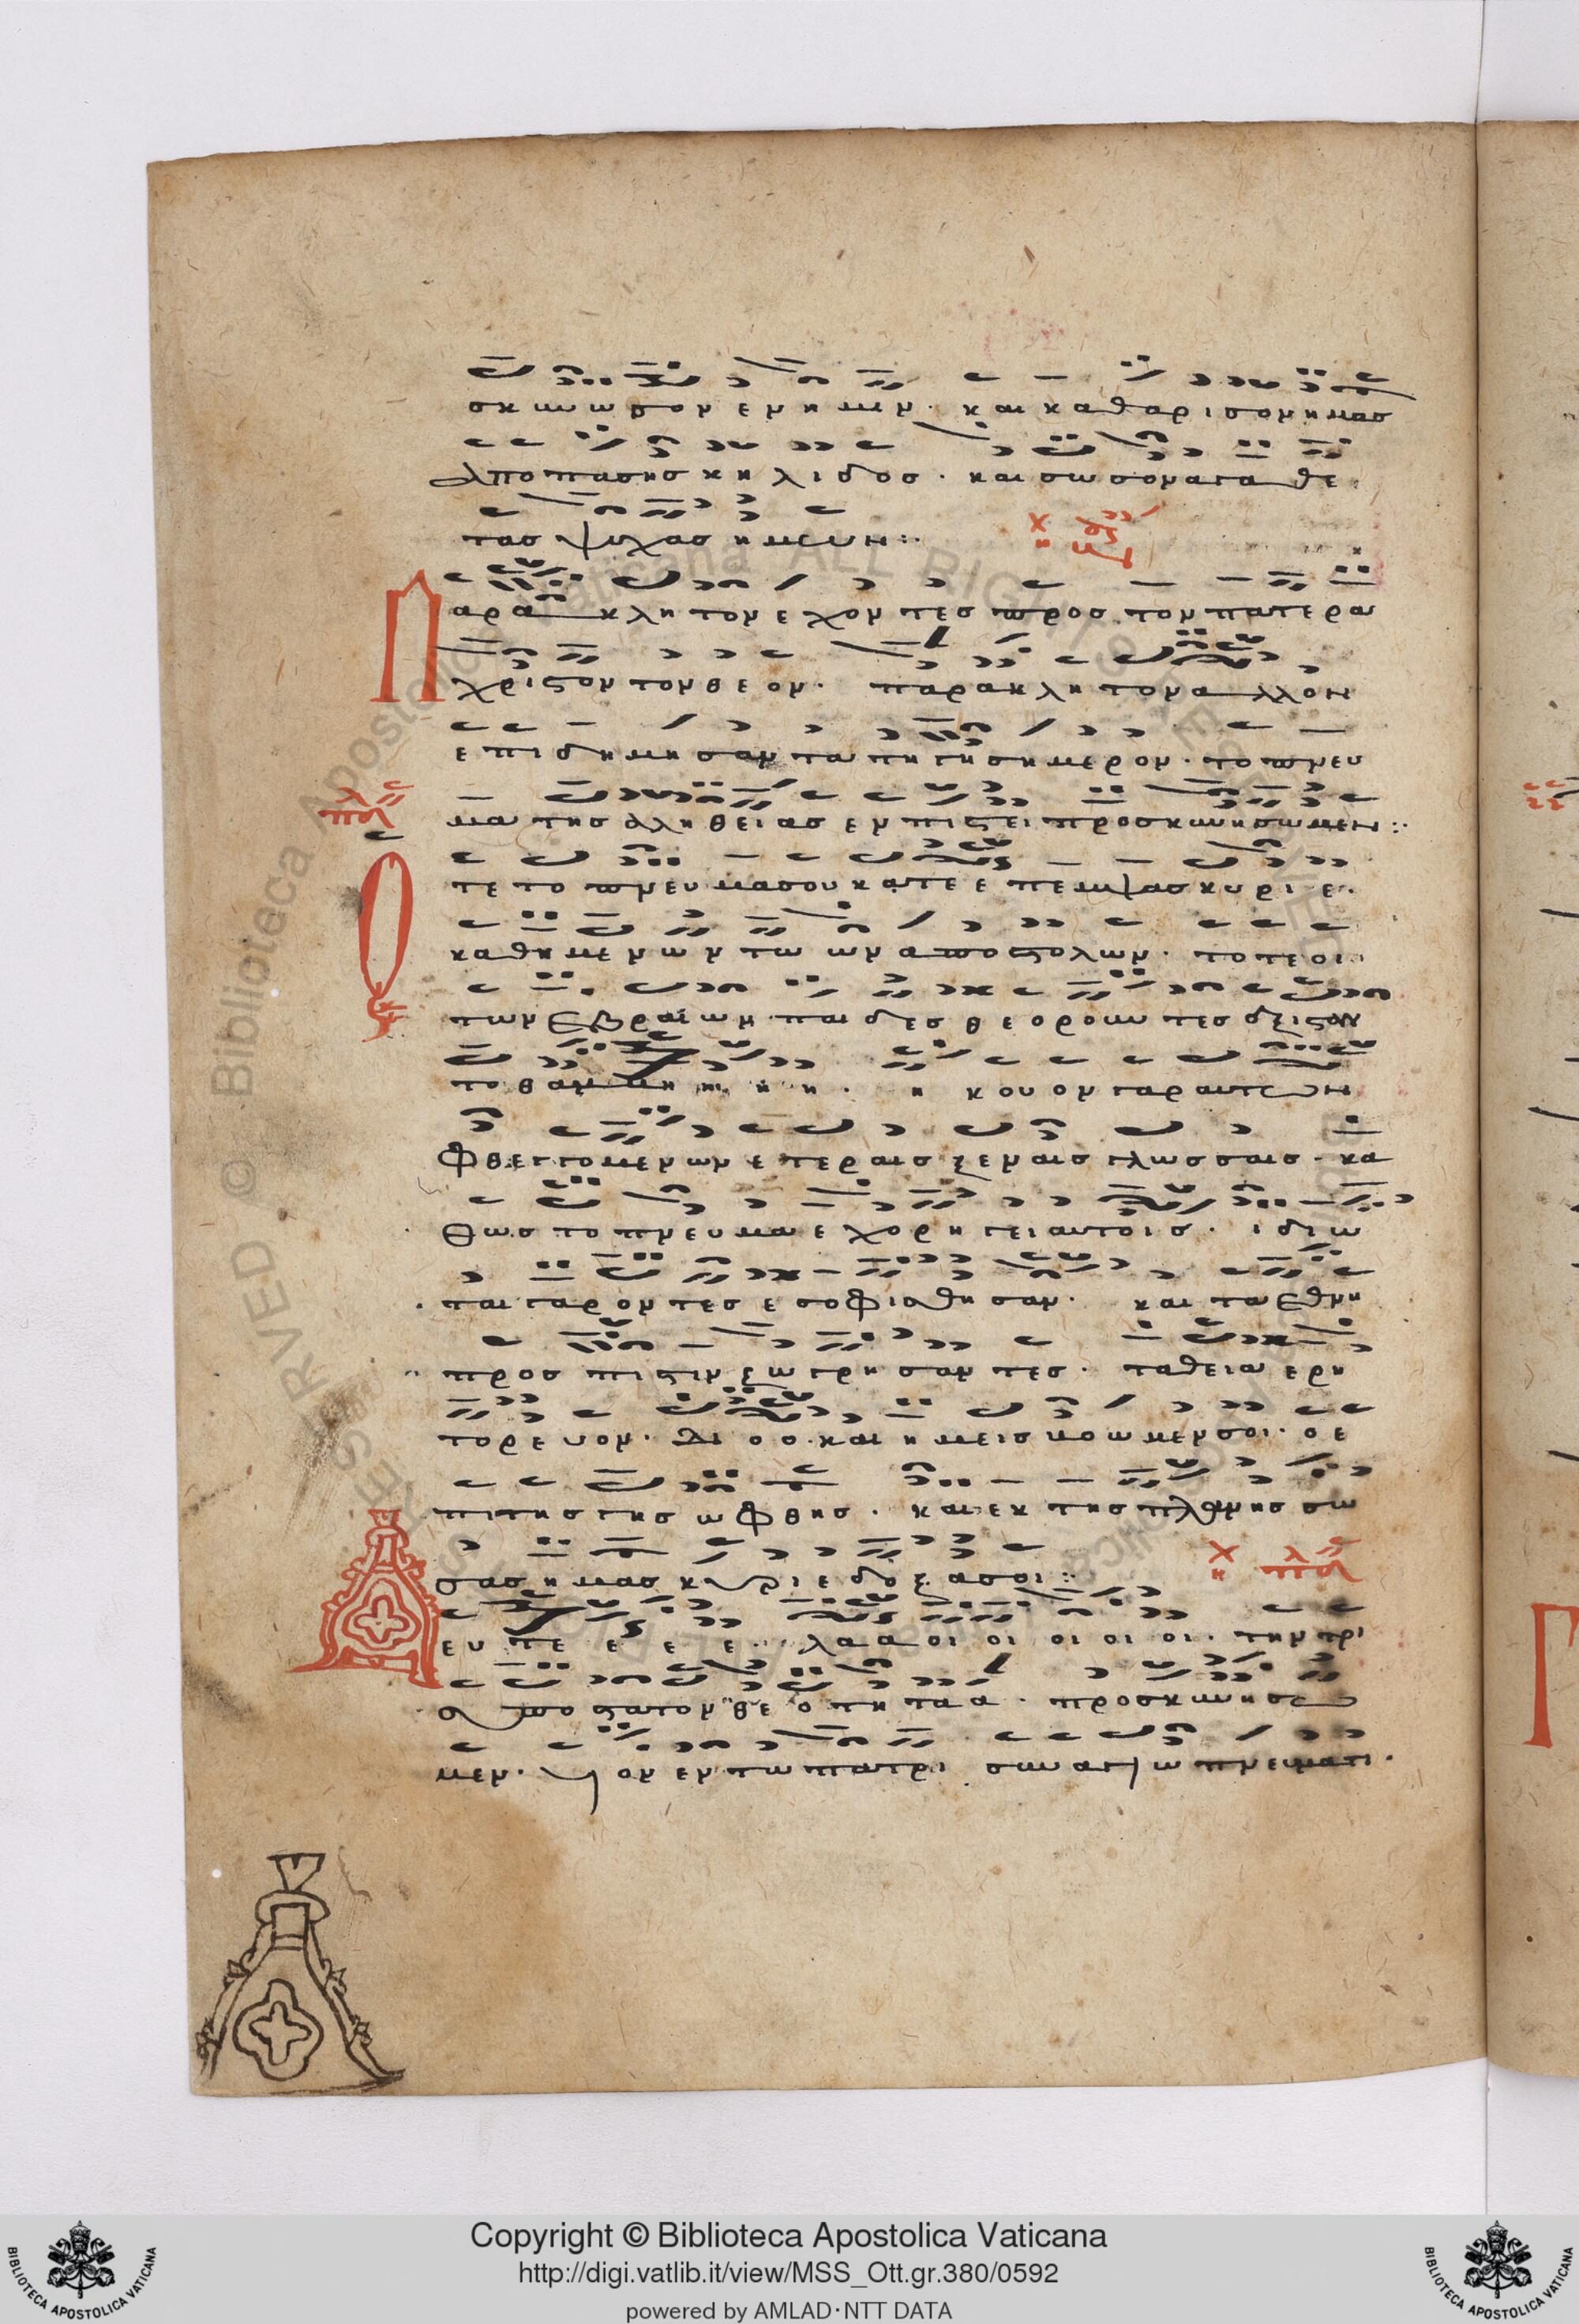 σκηνωσον εν ημιν· και καθαρισον ημας
απο πασης κηλιδος· και σωσον αγαθε
τας ψυχας ημων:·
Παρακλητον εχοντες προς τον πατερα
χριστον τον θεον· παρακλητον αλλον
επιδημησαντα τη γη σημερον· το πνευ
μα της αληθειας εν πιστει προσκυνησωμεν:·
Οτε το πνευμα σου κατεεπεμψας κυριε·
καθημενων τω ων αποστολων· τοτε οι
των εβραιων παιδες θεορουντες εξισταν
το θαμβη η η η· ηκουον γαρ αυτων
φθεγγομενων ετεραις ξεναις γλωσσαις· κα
θως το πνευμα εχορηγει αυτοις· ιδιω
ται γαρ οντες εσοφισθησαν· και τα εθνη
προς πιστιν ζωγρησαντες· τα θεια ερη
τορευον· διο ο και ημεις βοωμεν σοι· ο ε
πι της γης ωφθης· και εκ της πλανης σω
σας ημας κυριε δοξα σοι:·
Δευτε ε ε ε· λααοι οι οι οι οι· την τρι
συποστατον θεοτητα α· προσκυνησω
μεν· υιον εν τω πατρι συν αγιω πνευματι·
Copyright © Biblioteca Apostolica Vaticana
http://digi.vatlib.it/view/MSS_Ott.gr.380/0592
powered by AMLAD·NTT DATA